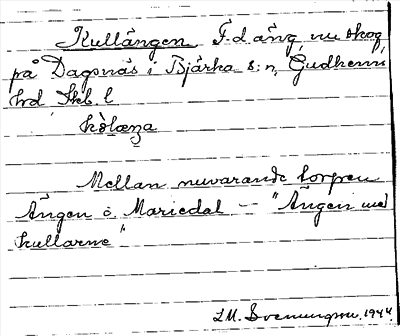 Kullängen F.d. äng nu skog
på Dagsnäs i Bjärka s:n, Gudhems
hrd Skb. l
Mellan nuvarande torpen
Ängen o. Mariedal - "Ängen med
kullarne"
1944.